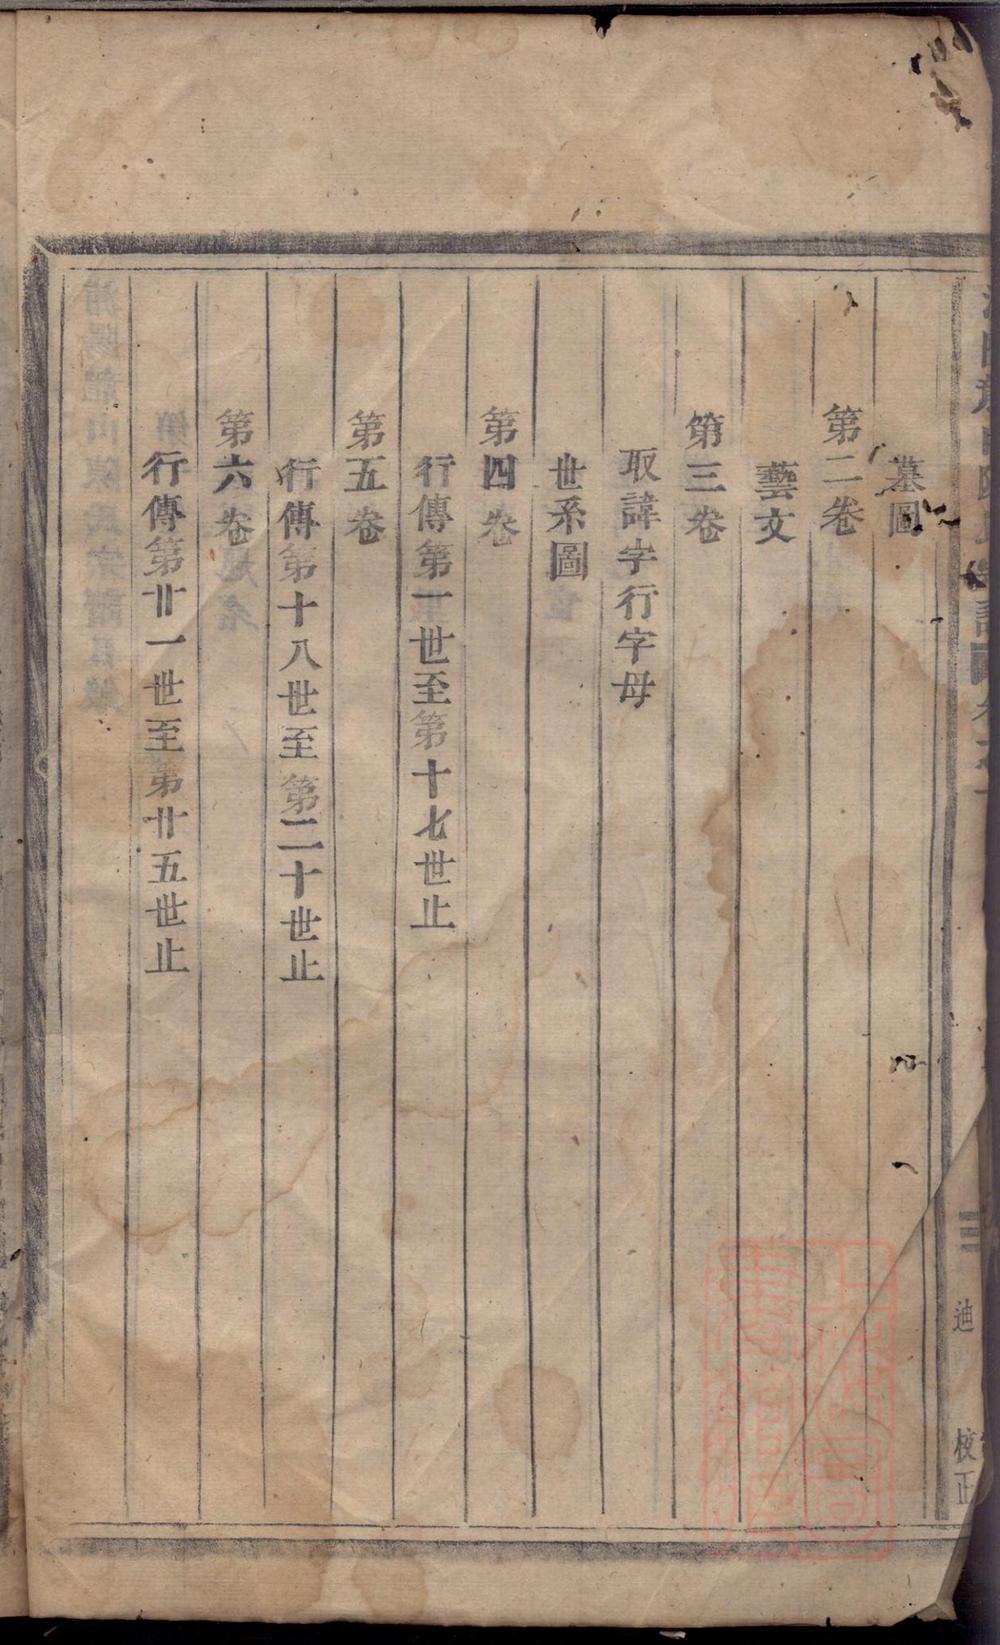 墓圖
第二卷
藝文
第三卷
取諱字行字母
世系圖
第四卷
行傳第一世至第十七世止
第五卷
行傳第十八世至第二十世止
第六卷
行傳第廿一世至第廿五世止
迪
校正